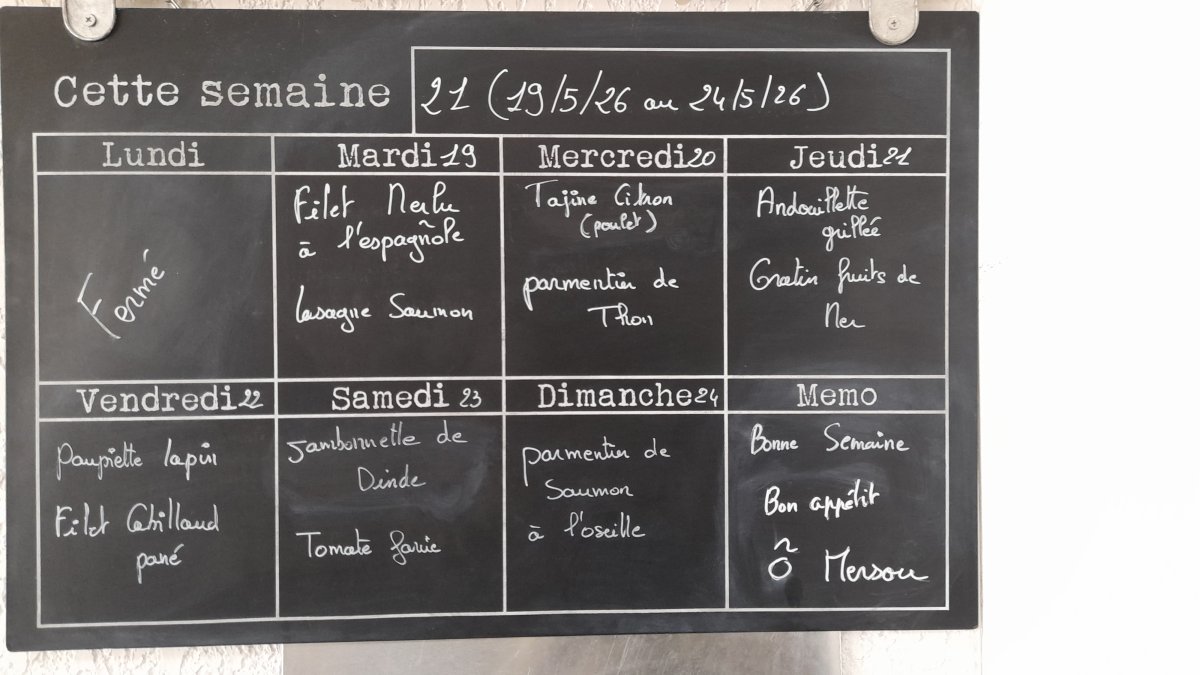 Cette semaine
21 (19/5/26 au 24/5/26)
Lundi
Fermé
Mardi 19
Filet Merlu
à l'espagñole
Lasagne Saumon
Mercredi 20
Tajine Citron
(poulet)
parmentier de
Thon
Jeudi 21
Andouillette
grillée
Gratin fruits de
Mer
Vendredi 22
Paupiette lapin
Filet Cabillaud
pané
Samedi 23
Jambonnette de
Dinde
Tomate farcie
Dimanche 24
parmentier de
Saumon
à l'oseille
Memo
Bonne Semaine
Bon appétit
Ô Mersou